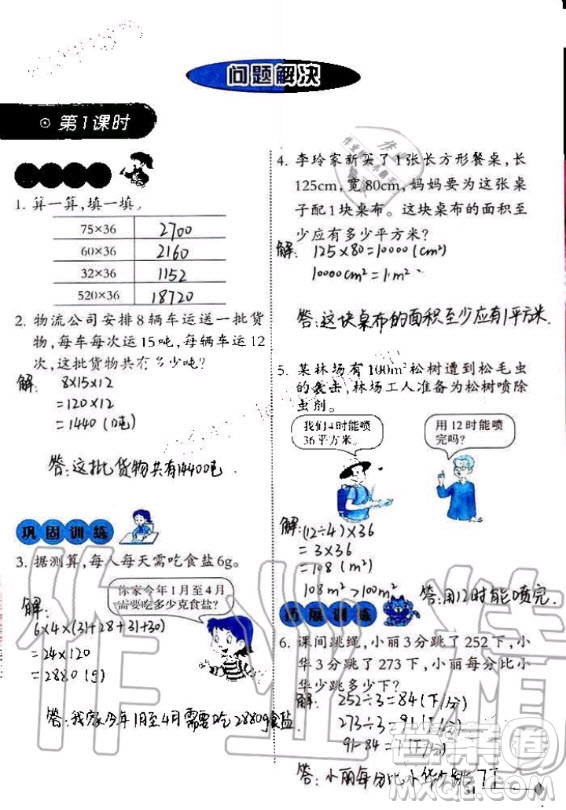 问题解决
第1课时
1. 算一算,填一填。
75×36 2700
60×36 2160
32×36 1152
520×36 18720
2. 物流公司安排8辆车运送一批货
物,每车每次运15吨,每辆车运12
次,这批货物共有多少吨?
解: 8×15×12
=120×12
=1440(吨)
答:这批货物共有14400吨
巩固训练
3. 据测算,每人每天需吃食盐6g。
你家今年1月至4月
需要吃多少克食盐?
解:
6×4×(31+28+31+30)
=24×120
=2880(g)
答:我家今年1月至4月需要吃2880g食盐
4. 李玲家新买了1张长方形餐桌,长
125cm,宽80cm,妈妈要为这张桌
子配1块桌布。这块桌布的面积至
少应有多少平方米?
解: 125×80=10000(cm²)
10000cm²=1m²
答:这块桌布的面积至少应有1平方米.
5. 某林场有100m²松树遭到松毛虫
的袭击,林场工人准备为松树喷除
虫剂。
我们4时能喷
36平方米。
用12时能喷
完吗?
解: (12÷4)×36
=3×36
=108(m²)
108m²>100m²
答:用12时能喷完.
拓展训练
6. 课间跳绳,小丽3分跳了252下,小
华3分跳了273下,小丽每分比小
华少跳多少下?
解: 252÷3=84(下/分)
273÷3=91(下/分)
91-84=(下/分)
答:小丽每分比小华少跳7下
作业精
答案圈